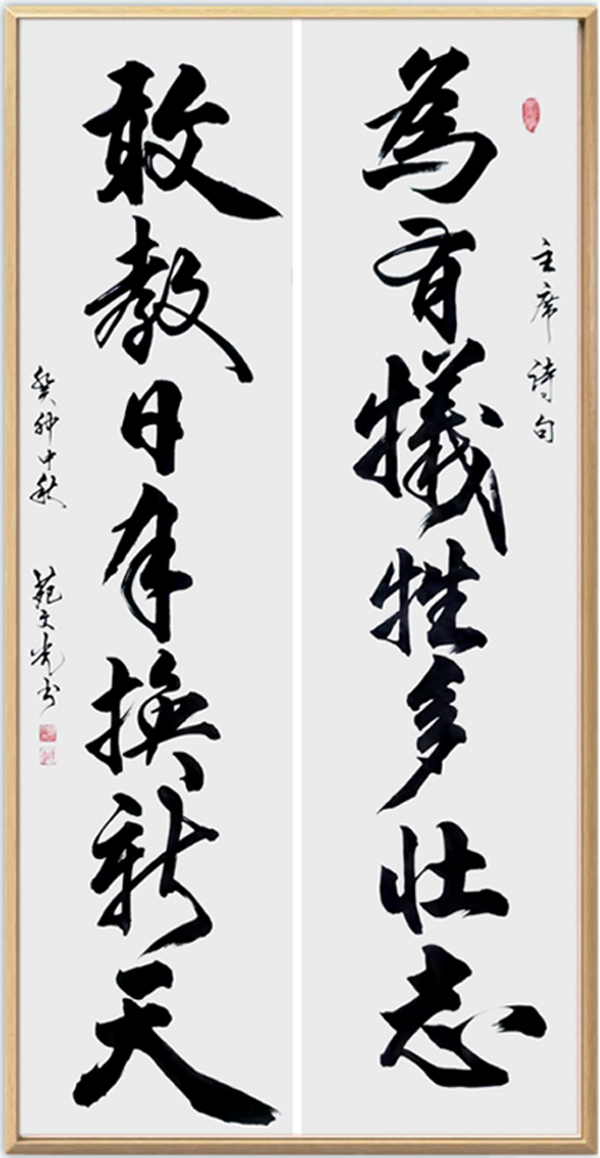 主席诗句
為有犧牲多壮志
敢教日月換新天
癸卯中秋 范文光书